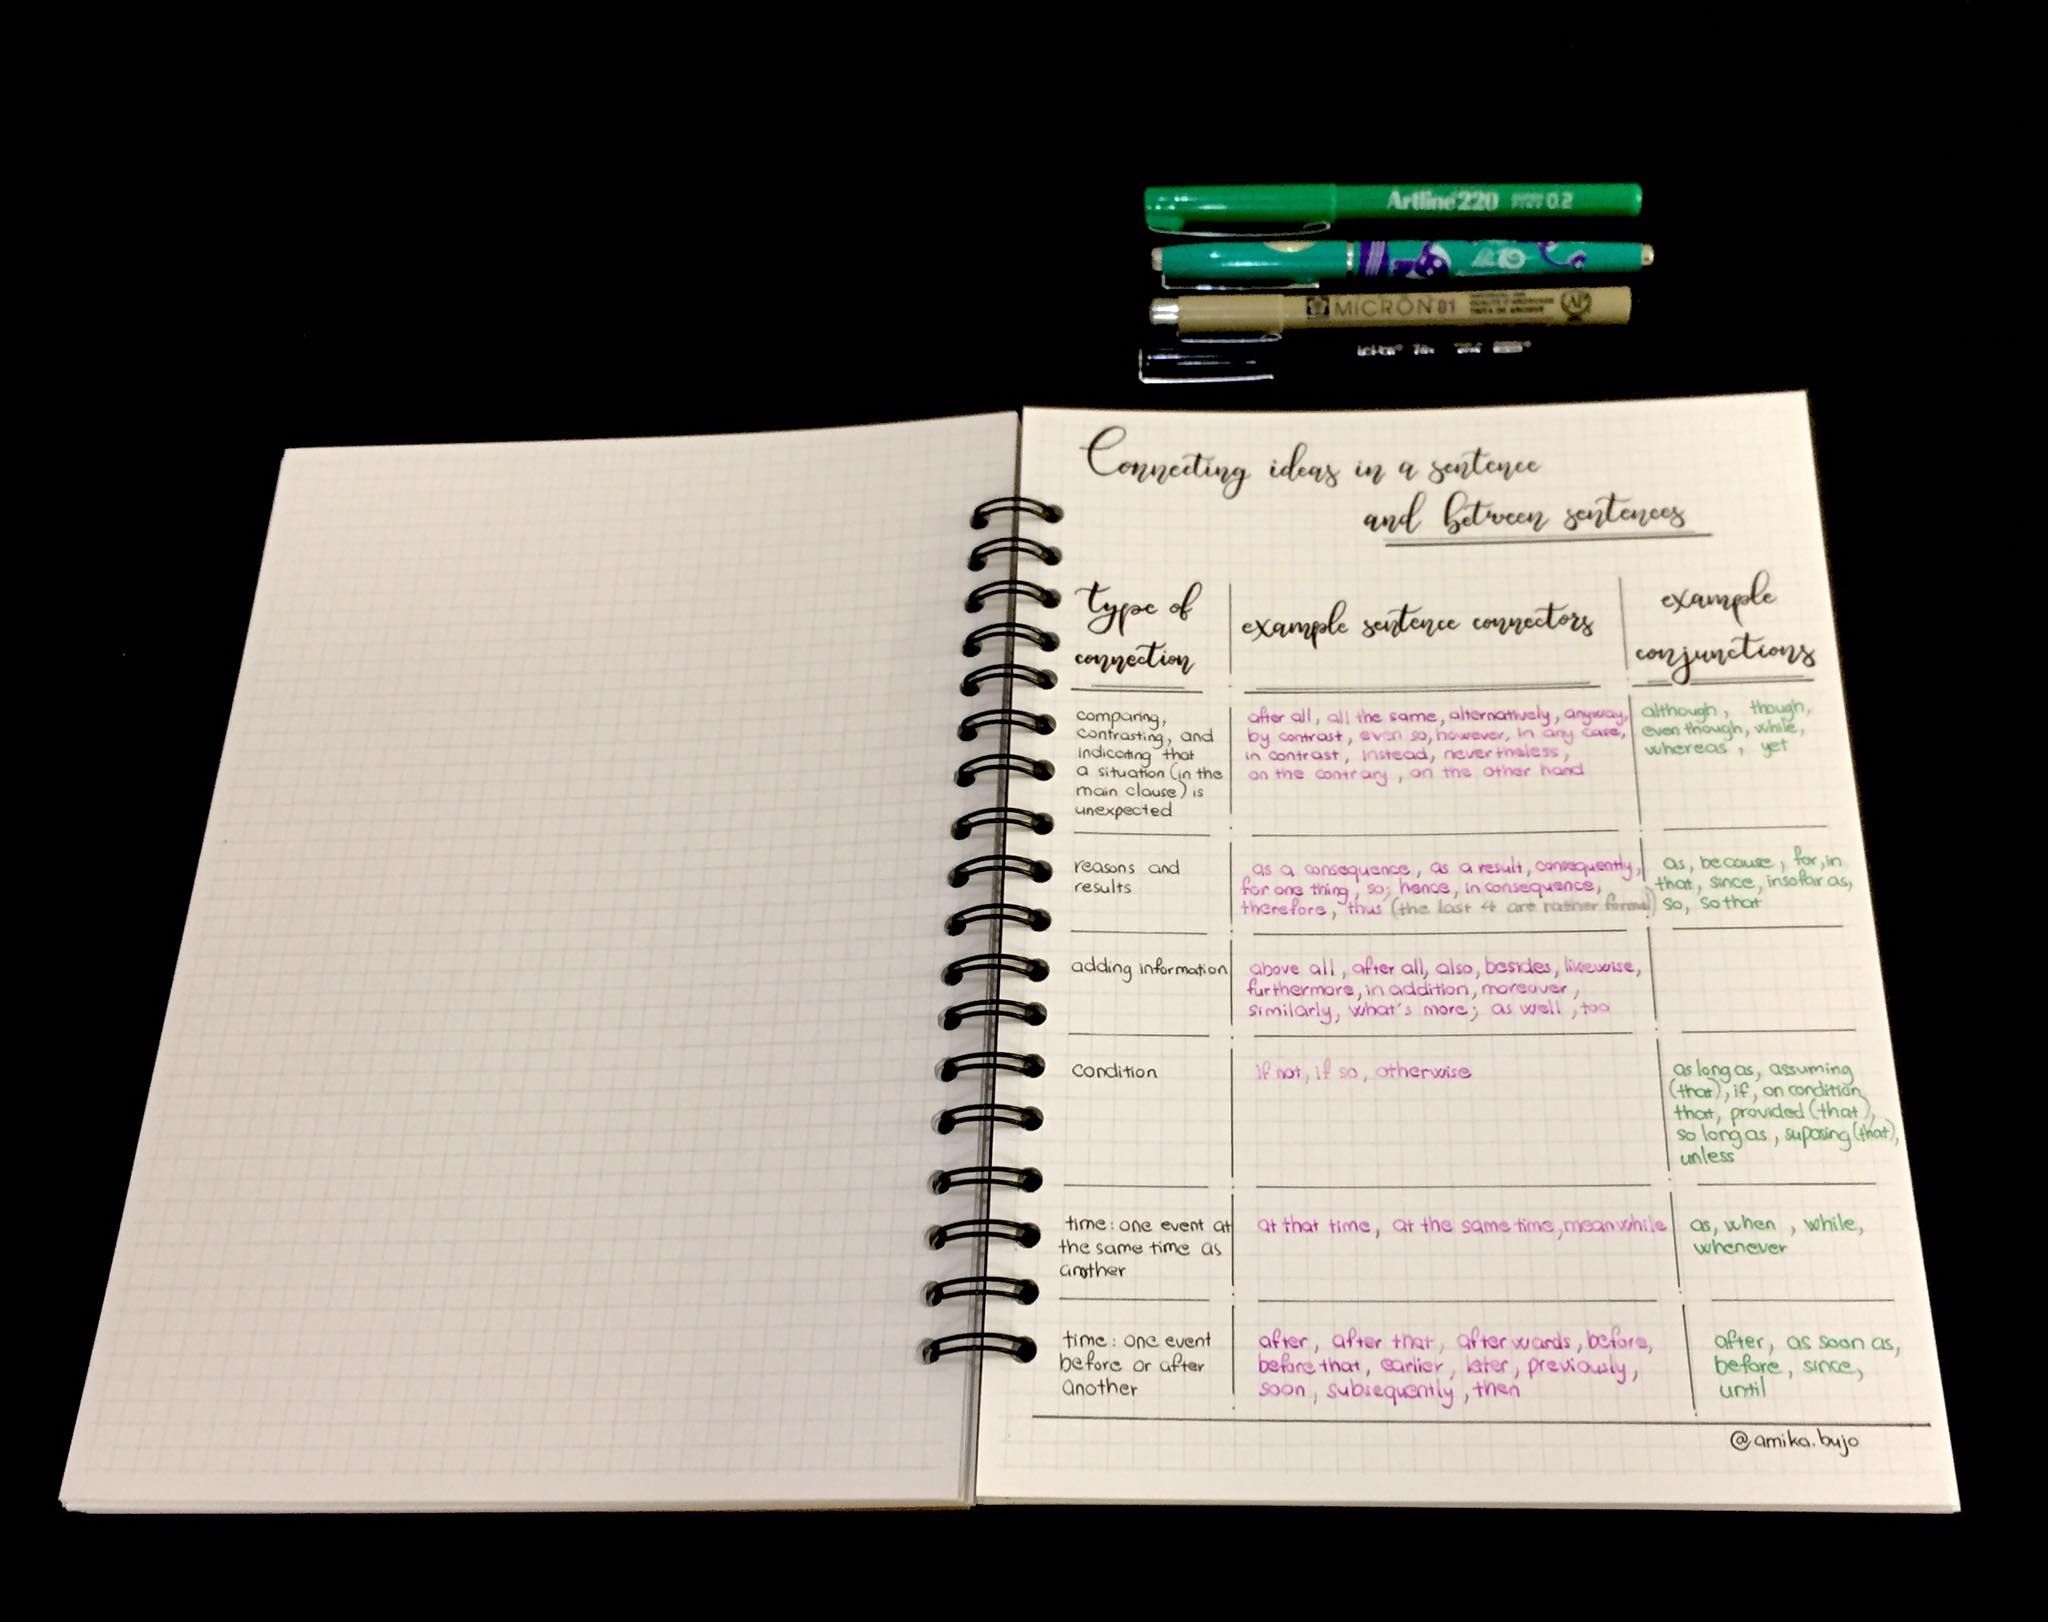 Artline 220 0.2
MICRON 01
Connecting ideas in a sentence
and between sentences
type of
connection
example sentence connectors
example
conjunctions
comparing,
contrasting, and
indicating that
a situation (in the
main clause) is
unexpected
after all, all the same, alternatively, anyway,
by contrast, even so, however, in any case,
in contrast, instead, nevertheless,
on the contrary, on the other hand
although, though,
even though, while,
whereas, yet
reasons and
results
as a consequence, as a result, consequently,
for one thing, so; hence, in consequence,
therefore, thus (the last 4 are rather formal)
as, because, for, in
that, since, insofar as,
so, so that
adding information
above all, after all, also, besides, likewise,
furthermore, in addition, moreover,
similarly, what's more; as well, too
condition
if not, if so, otherwise
as long as, assuming
(that), if, on condition
that, provided (that),
so long as, suposing (that),
unless
time: one event at
the same time as
another
at that time, at the same time, meanwhile
as, when, while,
whenever
time: one event
before or after
another
after, after that, afterwards, before,
before that, earlier, later, previously,
soon, subsequently, then
after, as soon as,
before, since,
until
@amika.bujo